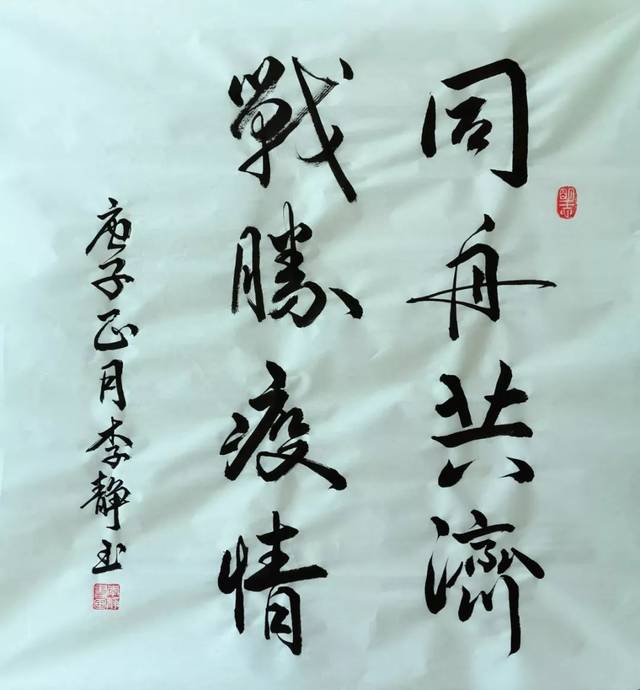 同舟共濟
戰勝疫情
庚子正月李静玉